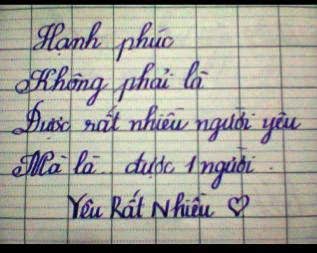 Hạnh phúc
Không phải là
Được rất nhiều người yêu
Mà là.. được 1 người.
Yêu Rất Nhiều ♡